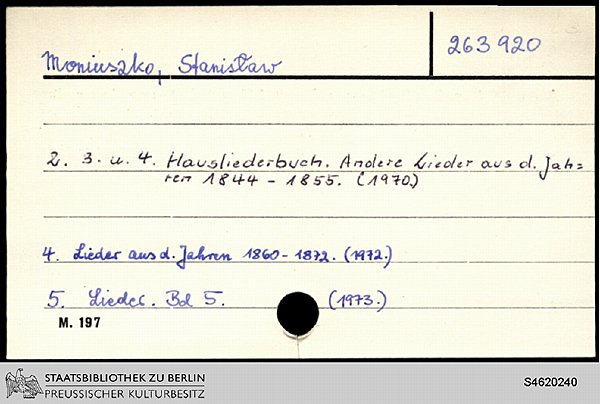 Moniuszko, Stanisław
263920
2. 3. u. 4. Hausliederbuch. Andere Lieder aus d. Jah=
ren 1844 - 1855. (1970)
4. Lieder aus d. Jahren 1860 - 1872. (1972.)
5. Lieder. Bd 5. (1973.)
M. 197
STAATSBIBLIOTHEK ZU BERLIN
PREUSSISCHER KULTURBESITZ
S4620240